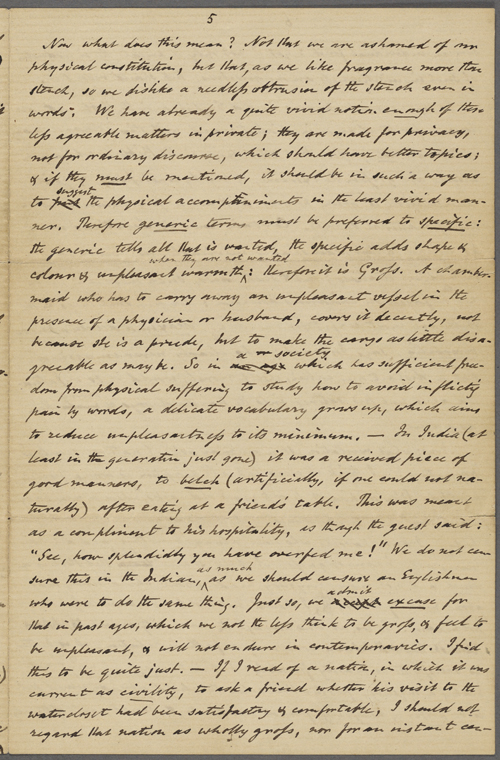 5
Now what does this mean? Not that we are ashamed of our
physical constitution, but that, as we like fragrance more than
stench, so we dislike a needless obtrusion of the stench even in
words. We have already a quite vivid notion enough of these
less agreeable matters in private; they are made for privacy,
not for ordinary discourse, which should have better topics;
& if they must be mentioned, it should be in such a way as
suggest
to the physical accompaniments in the least vivid man-
ner. Therefore generic terms must be preferred to specific:
the generic tells all that is wanted, the specific adds shape &
when they are not wanted
colour & unpleasant warmth: therefore it is Gross. A chamber-
maid who has to carry away an unpleasant vessel in the
presence of a physician or husband, covers it decently, not
because she is a prude, but to make the cargo as little disa-
a society
greeable as may be. So in which has sufficient free-
dom from physical suffering to study how to avoid inflicting
pain by words, a delicate vocabulary grows up, which aims
to reduce unpleasantness to its minimum. — In India (at
least in the generation just gone) it was a received piece of
good manners, to belch (artificially, if one could not na-
turally) after eating at a friend's table. This was meant
as a compliment to his hospitality, as though the guest said:
"See, how splendidly you have overfed me!" We do not cen-
as much
sure this in the Indian, as we should censure an Englishman
admit
who were to do the same thing. Just so, we excuse for
that in past ages, which we not the less think to be gross, & feel to
be unpleasant, & will not endure in contemporaries. I find
this to be quite just. — If I read of a nation, in which it was
current as civility, to ask a friend whether his visit to the
watercloset had been satisfactory & comfortable, I should not
regard that nation as wholly gross, nor for an instant cen-